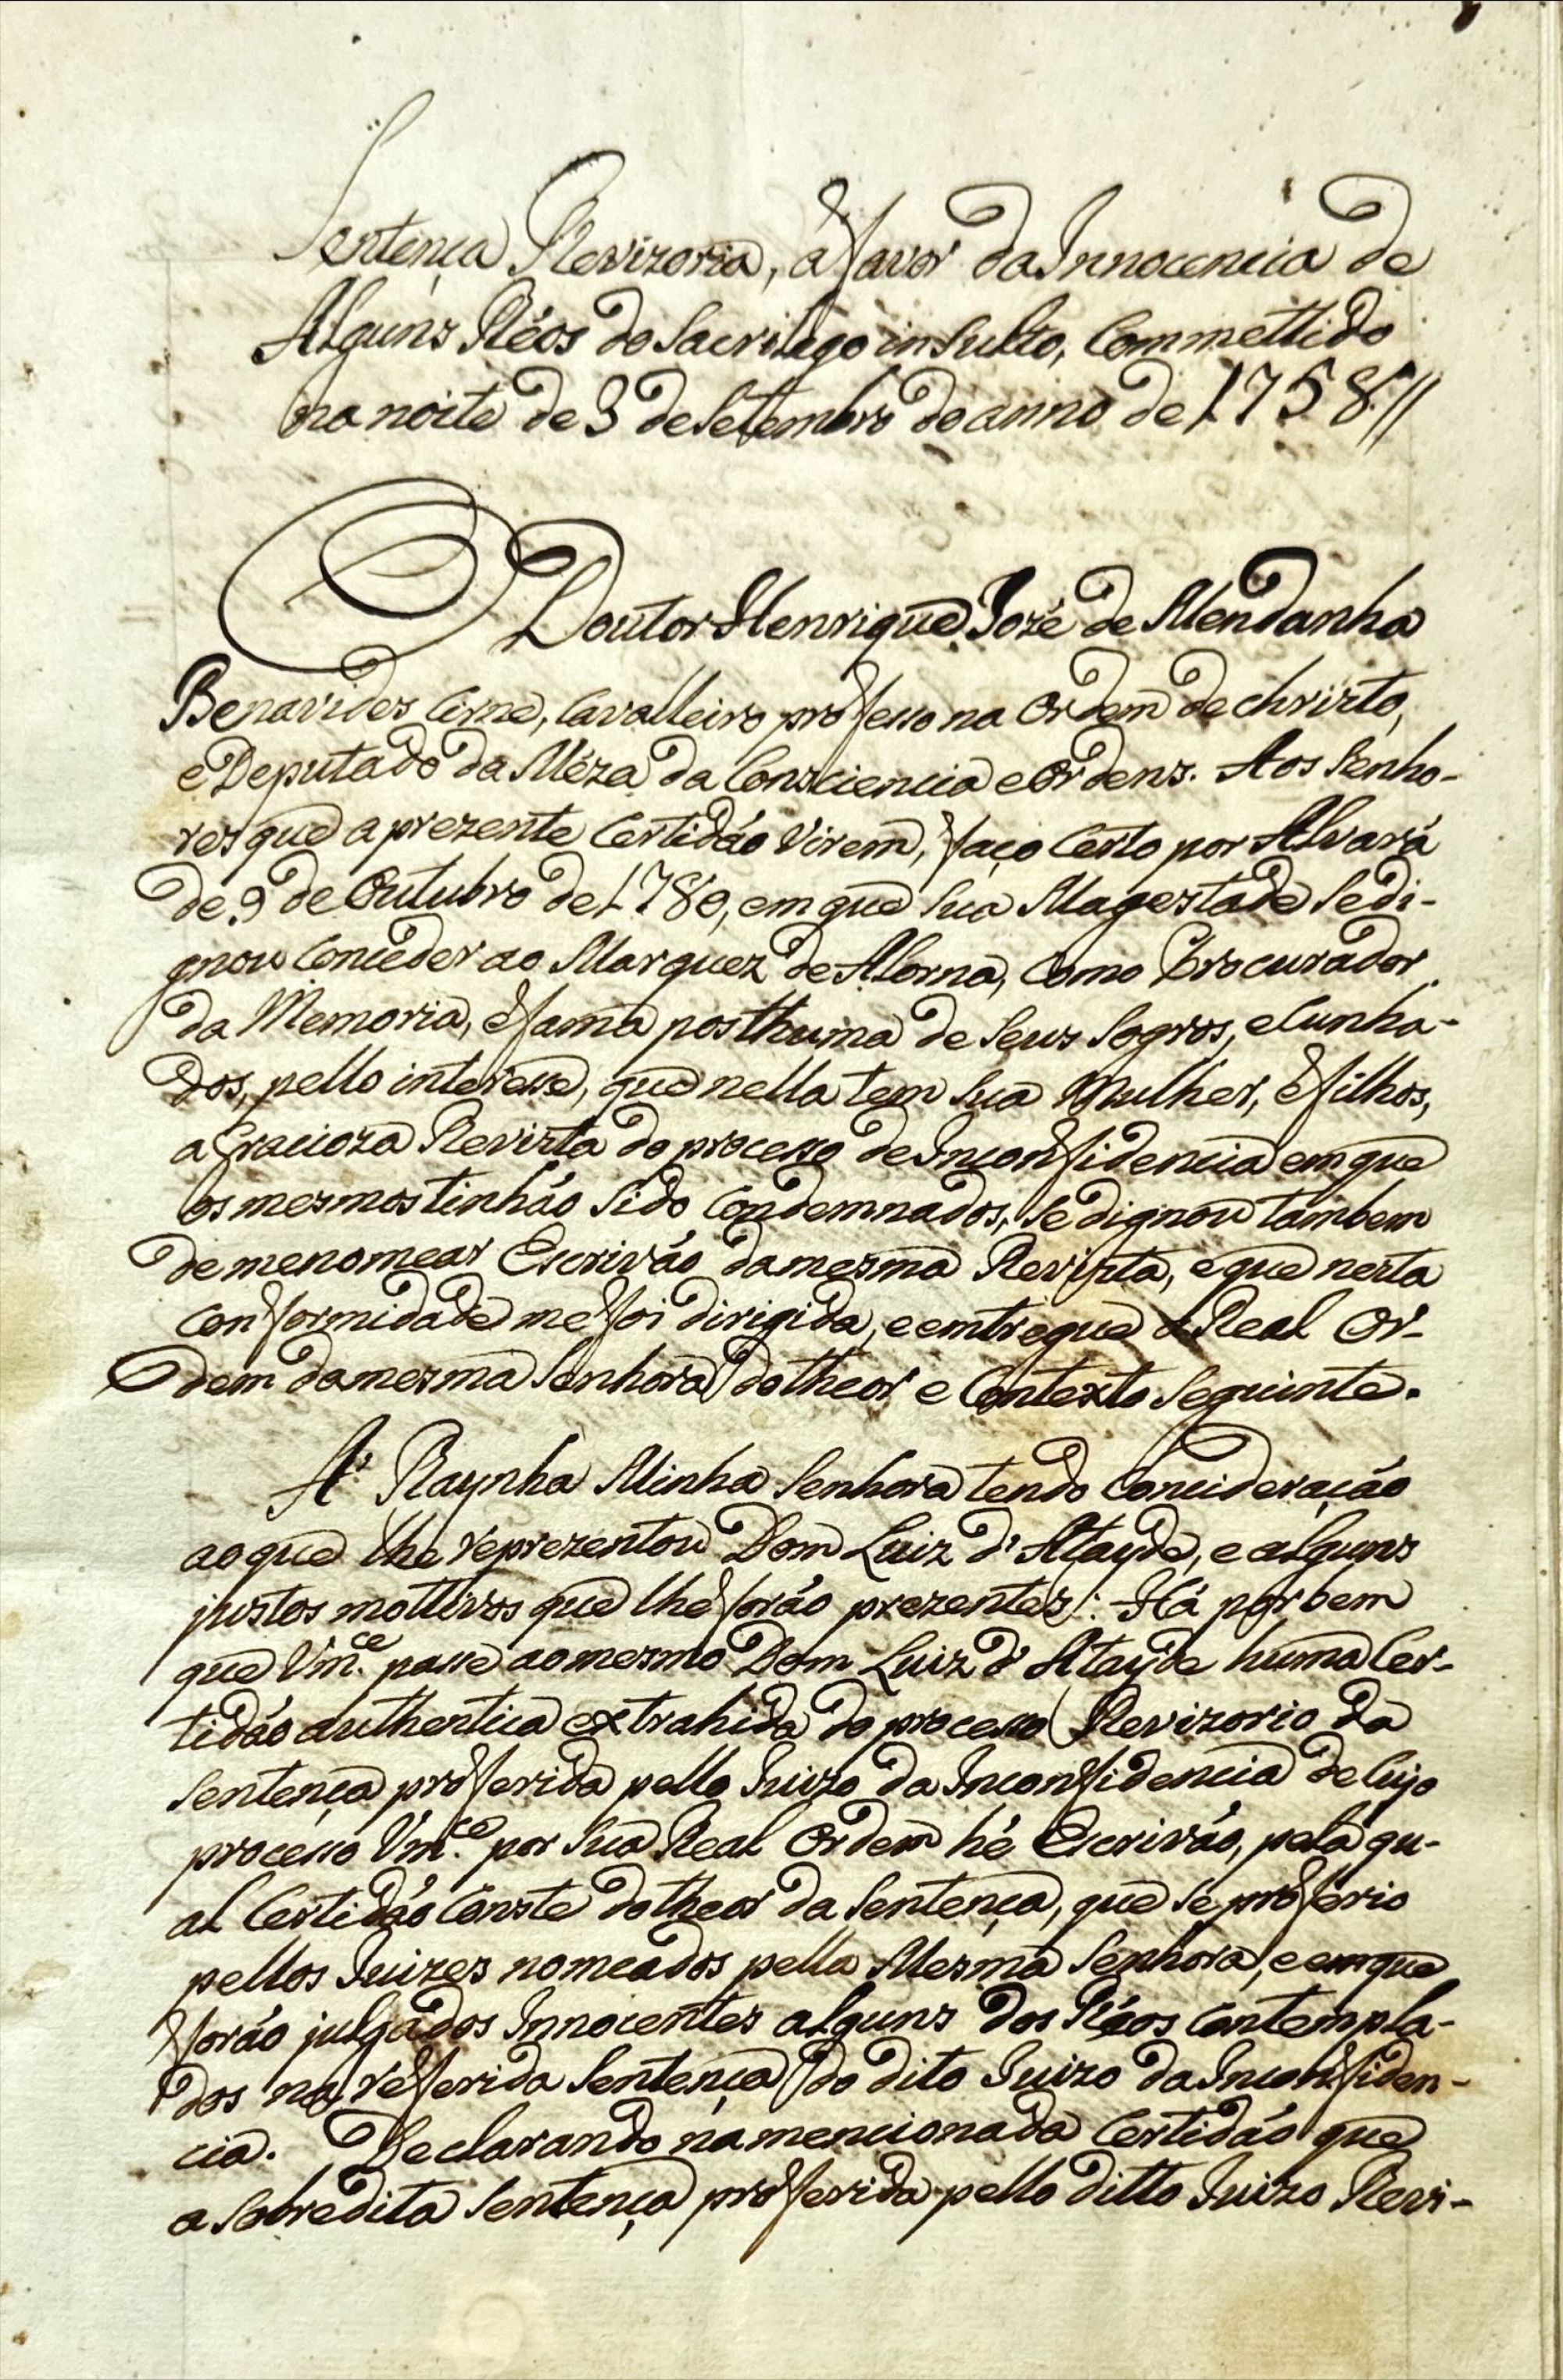 Sentença Revizoria, á favor da Innocencia de
Alguns Réos do Sacrilego insulto, Commettido
na noite de 3 de Setembro do anno de 1758//
O Doutor Henrique Jozé de Mendanha
Benavides Cirne, Cavalleiro professo na Ordem de christo,
e Deputado da Meza da Consciencia e Ordens. Aos Senho-
res que a prezente Certidão Virem, faço Certo por Alvará
de 9 de Outubro de 1780, em que Sua Magestade Se di-
gnou Conceder ao Marquez de Alorna, Como Procurador
da Memoria, e fama posthuma de Seus Sogros, e Cunha-
dos, pello interesse, que nella tem Sua Mulher, e filhos,
a Gracioza Revista do processo de Inconfidencia em que
os mesmos tinhão Sido Condemnados, Se dignou tambem
de me nomear Escrivão da mesma Revista, e que nesta
Conformidade me foi dirigida, e entregue a Real Or-
dem da mesma Senhora do theor e Contexto Seguinte.
A' Raynha Minha Senhora tendo Concideração
ao que lhe reprezentou Dom Luiz d' Atayde, e alguns
justos mottivos que lhe forão prezentes: Há por bem
que Vm.ce passe ao mesmo Dom Luiz d' Atayde huma Cer-
tidão authentica extrahida do processo Revizorio da
Sentença proferida pello Juizo da Inconfidencia de Cujo
processo Vm.ce por Sua Real Ordem hé Escrivão, pela qu-
al Certidão Conste do theor da Sentença, que Se proferio
pellos Juizes nomeados pella Mesma Senhora, e em que
forão julgados Innocentes alguns dos Réos Contempla-
dos na referida Sentença do dito Juizo da Inconfiden-
cia. Declarando na mencionada Certidão que
a Sobredita Sentença proferida pello ditto Juizo Revi-